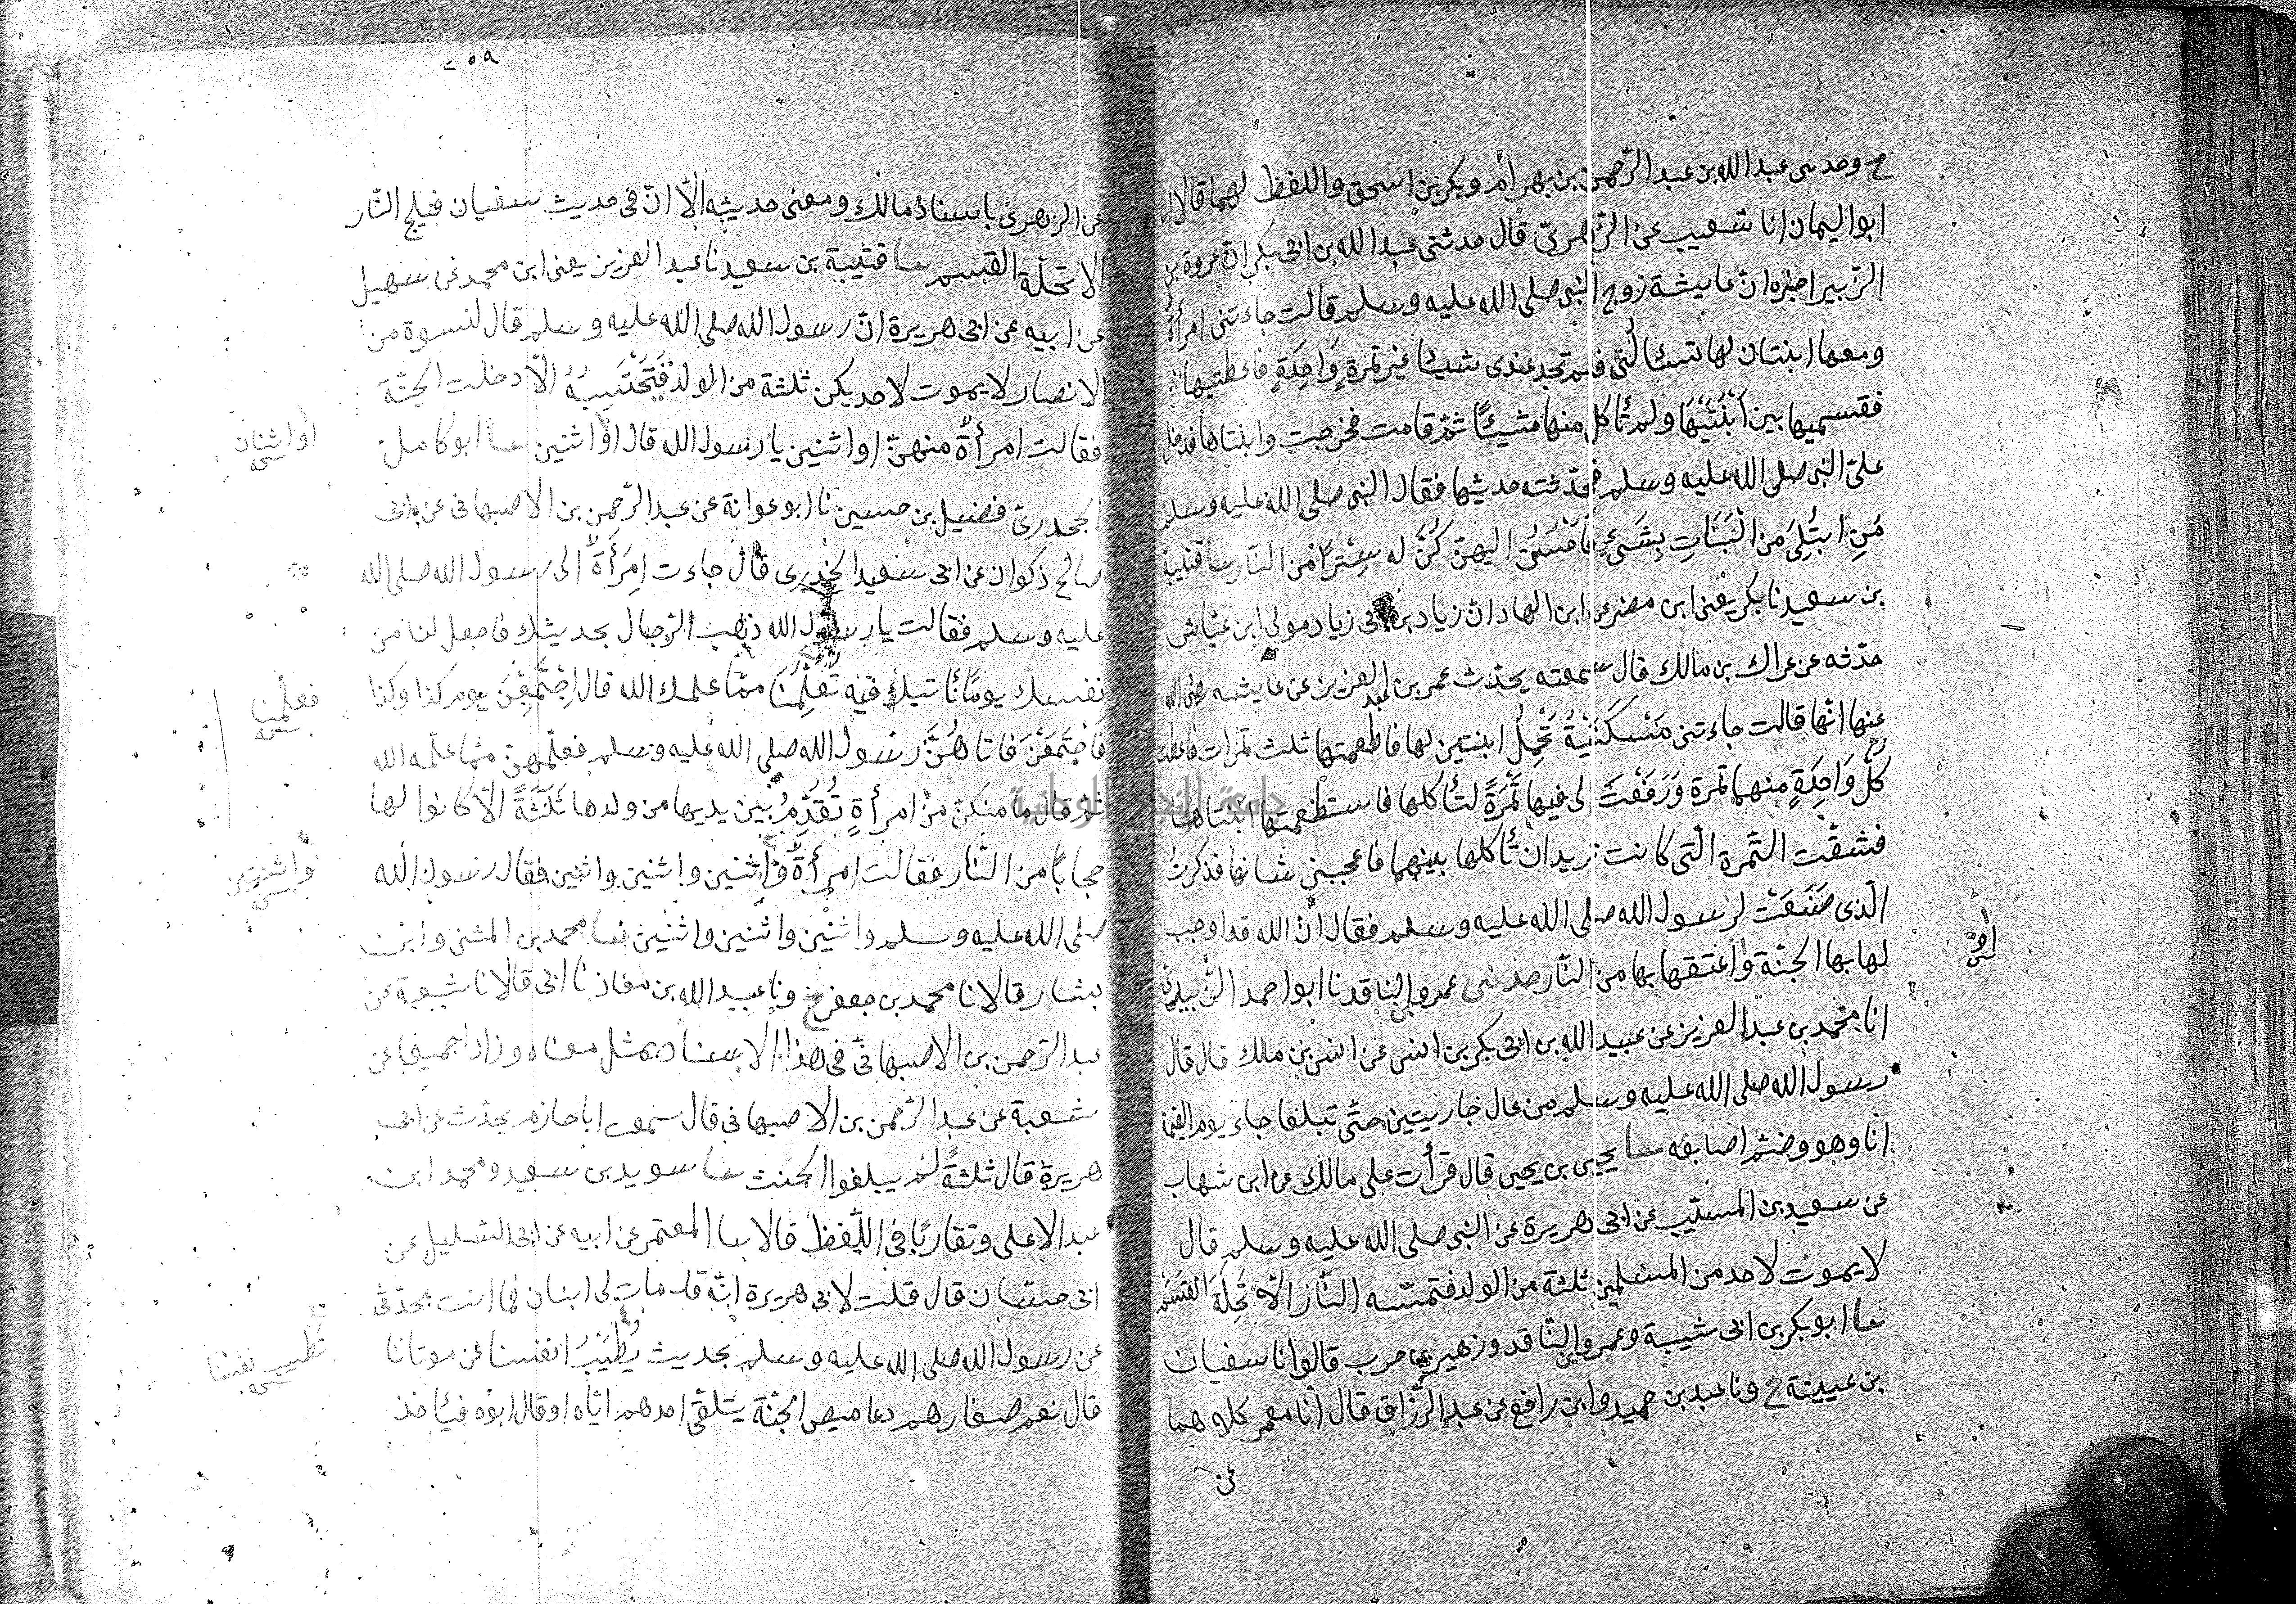 ح وحدثنى عبد الله بن عبد الرّحمن بن بهرام وبكر بن اسحق واللفظ لهما قالا انا
ابو اليمان انا شعيب عن الزّهرىّ قال حدثنى عبد الله بن ابى بكر انّ عروة بن
الزبير اخبره انّ عايشة زوج النبى صلى الله عليه وسلم قالت جاءتنى امرأةٌ
ومعها ابنتان لها تسئالُنى فلم تجد عندى شيئا غير تمرةٍ وَاحِدَةٍ فاعطتيها
فقسميها بين اَبْنَتَيْهَا ولم تأكل منها شيئًا ثمّ قامت فخرجت وابنتاها فدخل
علىّ النبى صلى الله عليه وسلم فحدّثته حديثها فقال النبى صلى الله عليه وسلم
مَنِ ابتُلِىَ من الْبَنَاتِ بِشَىءٍ فَاَحْسَنَ اليهنّ كُنَّ له سِتْرًا من النّار سا قتيبة
بن سعيد نا بكر يعنى ابن مضر عن ابن الهاد انّ زياد بن ابى زياد مولى ابن عيّاش
حدّثه عن عراك بن مالك قال سمعته يحدّث عمر بن عبد العزيز عن عايشه رضى الله
عنها انّها قالت جاءتنى مَسْكَنِيْةُ تَحْمِلُ ابنتين لها فاطعمتها ثلث تمرات فاعطت
كلَّ وَاحِدَةٍ منهما تمرة وَرَفَعَتْ الى فيها تَمْرَةً لتأكلها فاستطعمتها ابنتاها
فشقّت التّمرة الّتى كانت تريد ان تأكلها بينهما فاعجبنى شانها فذكرتُ
الّذى صَنَعَتْ لرسول الله صلى الله عليه وسلم فقال انّ الله قد اوجب
لها بها الجنّة واعتقها بها من النّار حدثنى عمرو النّاقد نا ابو احمد الزّبيرىّ
انا محمد بن عبد العزيز عن عبيد الله بن ابى بكر بن انس عن انس بن مالك قال قال
رسول الله صلى الله عليه وسلم من عال جاريتين حتّى تبلغا جاء يوم القيمة
انا وهو وضمّ اصابعه سا يحيى بن يحيى قال قرأت على مالك عن ابن شهاب
عن سعيد بن المسيّب عن ابى هريرة عن النّبى صلى الله عليه وسلم قال
لا يموت لاحد من المسلمين ثلثة من الولد فتمسّه النّار الّا تَحِلَّةَ القَسَمْ
سا ابو بكر بن ابى شيبة وعمرو النّاقد وزهير بن حرب قالوا نا سفيان
بن عيينة ح ونا عبد بن حميد وابن رافع عن عبد الرّزّاق قال انا معمر كلاهما
عن
او
٢٥٩
عن الزهرى باسناد مالك ومعنى حديثه الّا انّ فى حديث سفيان فيلج النّار
الا تحلّة القسم سا قتيبة بن سعيد نا عبد العزيز يعنى ابن محمد عن سهيل
عن ابيه عن ابى هريرة انّ رسول الله صلى الله عليه وسلم قال لنسوة من
الانصار لا يموت لاحديكن ثلثة من الولد فَتَحْتَسِبُهُ الّا دخلت الجنّة
فقالت امرأةٌ منهنّ او اثنين يا رسول الله قال او اثنين سا ابو كامل
الجحدرىّ فضيل بن حسين نا ابو عوانة عن عبد الرّحمن بن الاصبهانى عن ابى
صالح ذكوان عن ابى سعيد الخدرى قال جاءت اِمرَأَةٌ الى رسول الله صلى الله
عليه وسلم فقالت يا رسول الله ذهب الرّجال بحديثك فاجعل لنا من
نفسك يومًا نأتيك فيه تُعَلِّمُنَا ممّا علمك الله قال اِجْتَمِعْنَ يوم كذا وكذا
فَاجْتَمَعْنَ فاتاهُنَّ رسول الله صلى الله عليه وسلم فعلّمهنّ ممّا علّمه الله
ثمّ قال ما منكنّ من امرأةٍ تُقَدِّمُ بين يديها من ولدها ثَلَثَةً الّا كانوا لها
حجابًا من النّار فقالت امرأةٌ واثنين واثنين واثنين فقال رسول الله
صلى الله عليه وسلم واثنين واثنين واثنين نا محمد بن المثنى وابن
بشار قالا نا محمد بن جعفر ح ونا عبيد الله بن معاذ نا ابى قالا نا شعبة عن
عبد الرّحمن بن الاصبهانىّ فى هذا الاسناد بمثل معناه وزادا جميعا عن
شعبة عن عبد الرّحمن بن الاصبهانى قال سمعت ابا حازم يحدّث عن ابى
هريرة قال ثلثةً لم يبلغوا الحنث سا سويد بن سعيد ومحمد ابن
عبد الاعلى وتقاربًا فى اللّفظ قالا سا المعتمر عن ابيه عن ابى السّليل عن
ابى حسّان قال قلت لابى هريرة انّه قد مات لى ابنان فما انت محدّثى
عن رسول الله صلى الله عليه وسلم بحديث يُطَيِّبُ انفسنا عن موتانا
قال نعم صغارهم دعاميص الجنّة يتلقّى احدهم اباه او قال ابوه فيأخذ
او اثنان
فعلّمنا
واثنتين
تطيب نفسنا
جامعة النجاح الوطنية